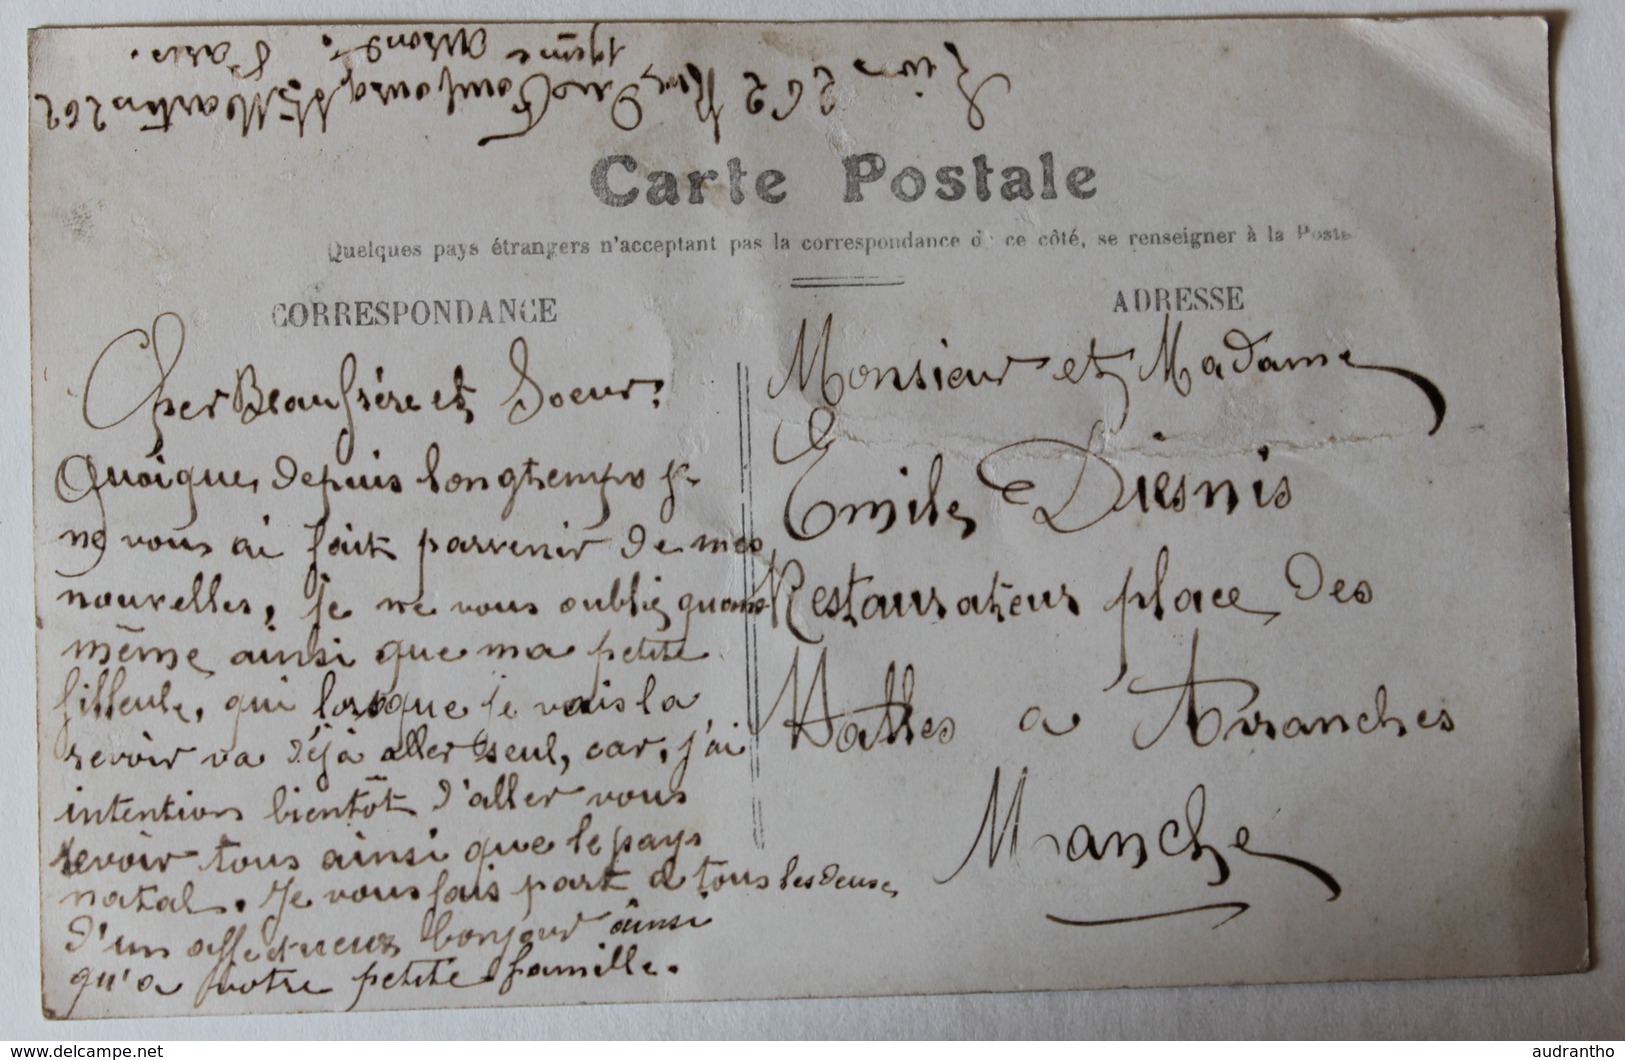 262 Rue du Faubourg St Martin 262
19ème Arrond.
Paris.
Carte Postale
Quelques pays étrangers n'acceptant pas la correspondance de ce côté, se renseigner à la Poste
CORRESPONDANCE
Cher Beaufrère et Soeur;
Quoique, depuis longtemps je
ne vous ai fait parvenir de mes
nouvelles, je ne vous oublie quand
même ainsi que ma petite
filleule, qui lorsque je vais la
revoir va déjà aller seul, car, j'ai
intention bientôt d'aller vous
revoir tous ainsi que le pays
natal. Je vous fais part à tous les deux,
d'un affectueux bonjour ainsi
qu'a votre petite famille.
ADRESSE
Monsieur et Madame
Emile Diesnis
Restaurateur place des
Halles a Avranches
Manche
http://www.delcampe.net
audrantho